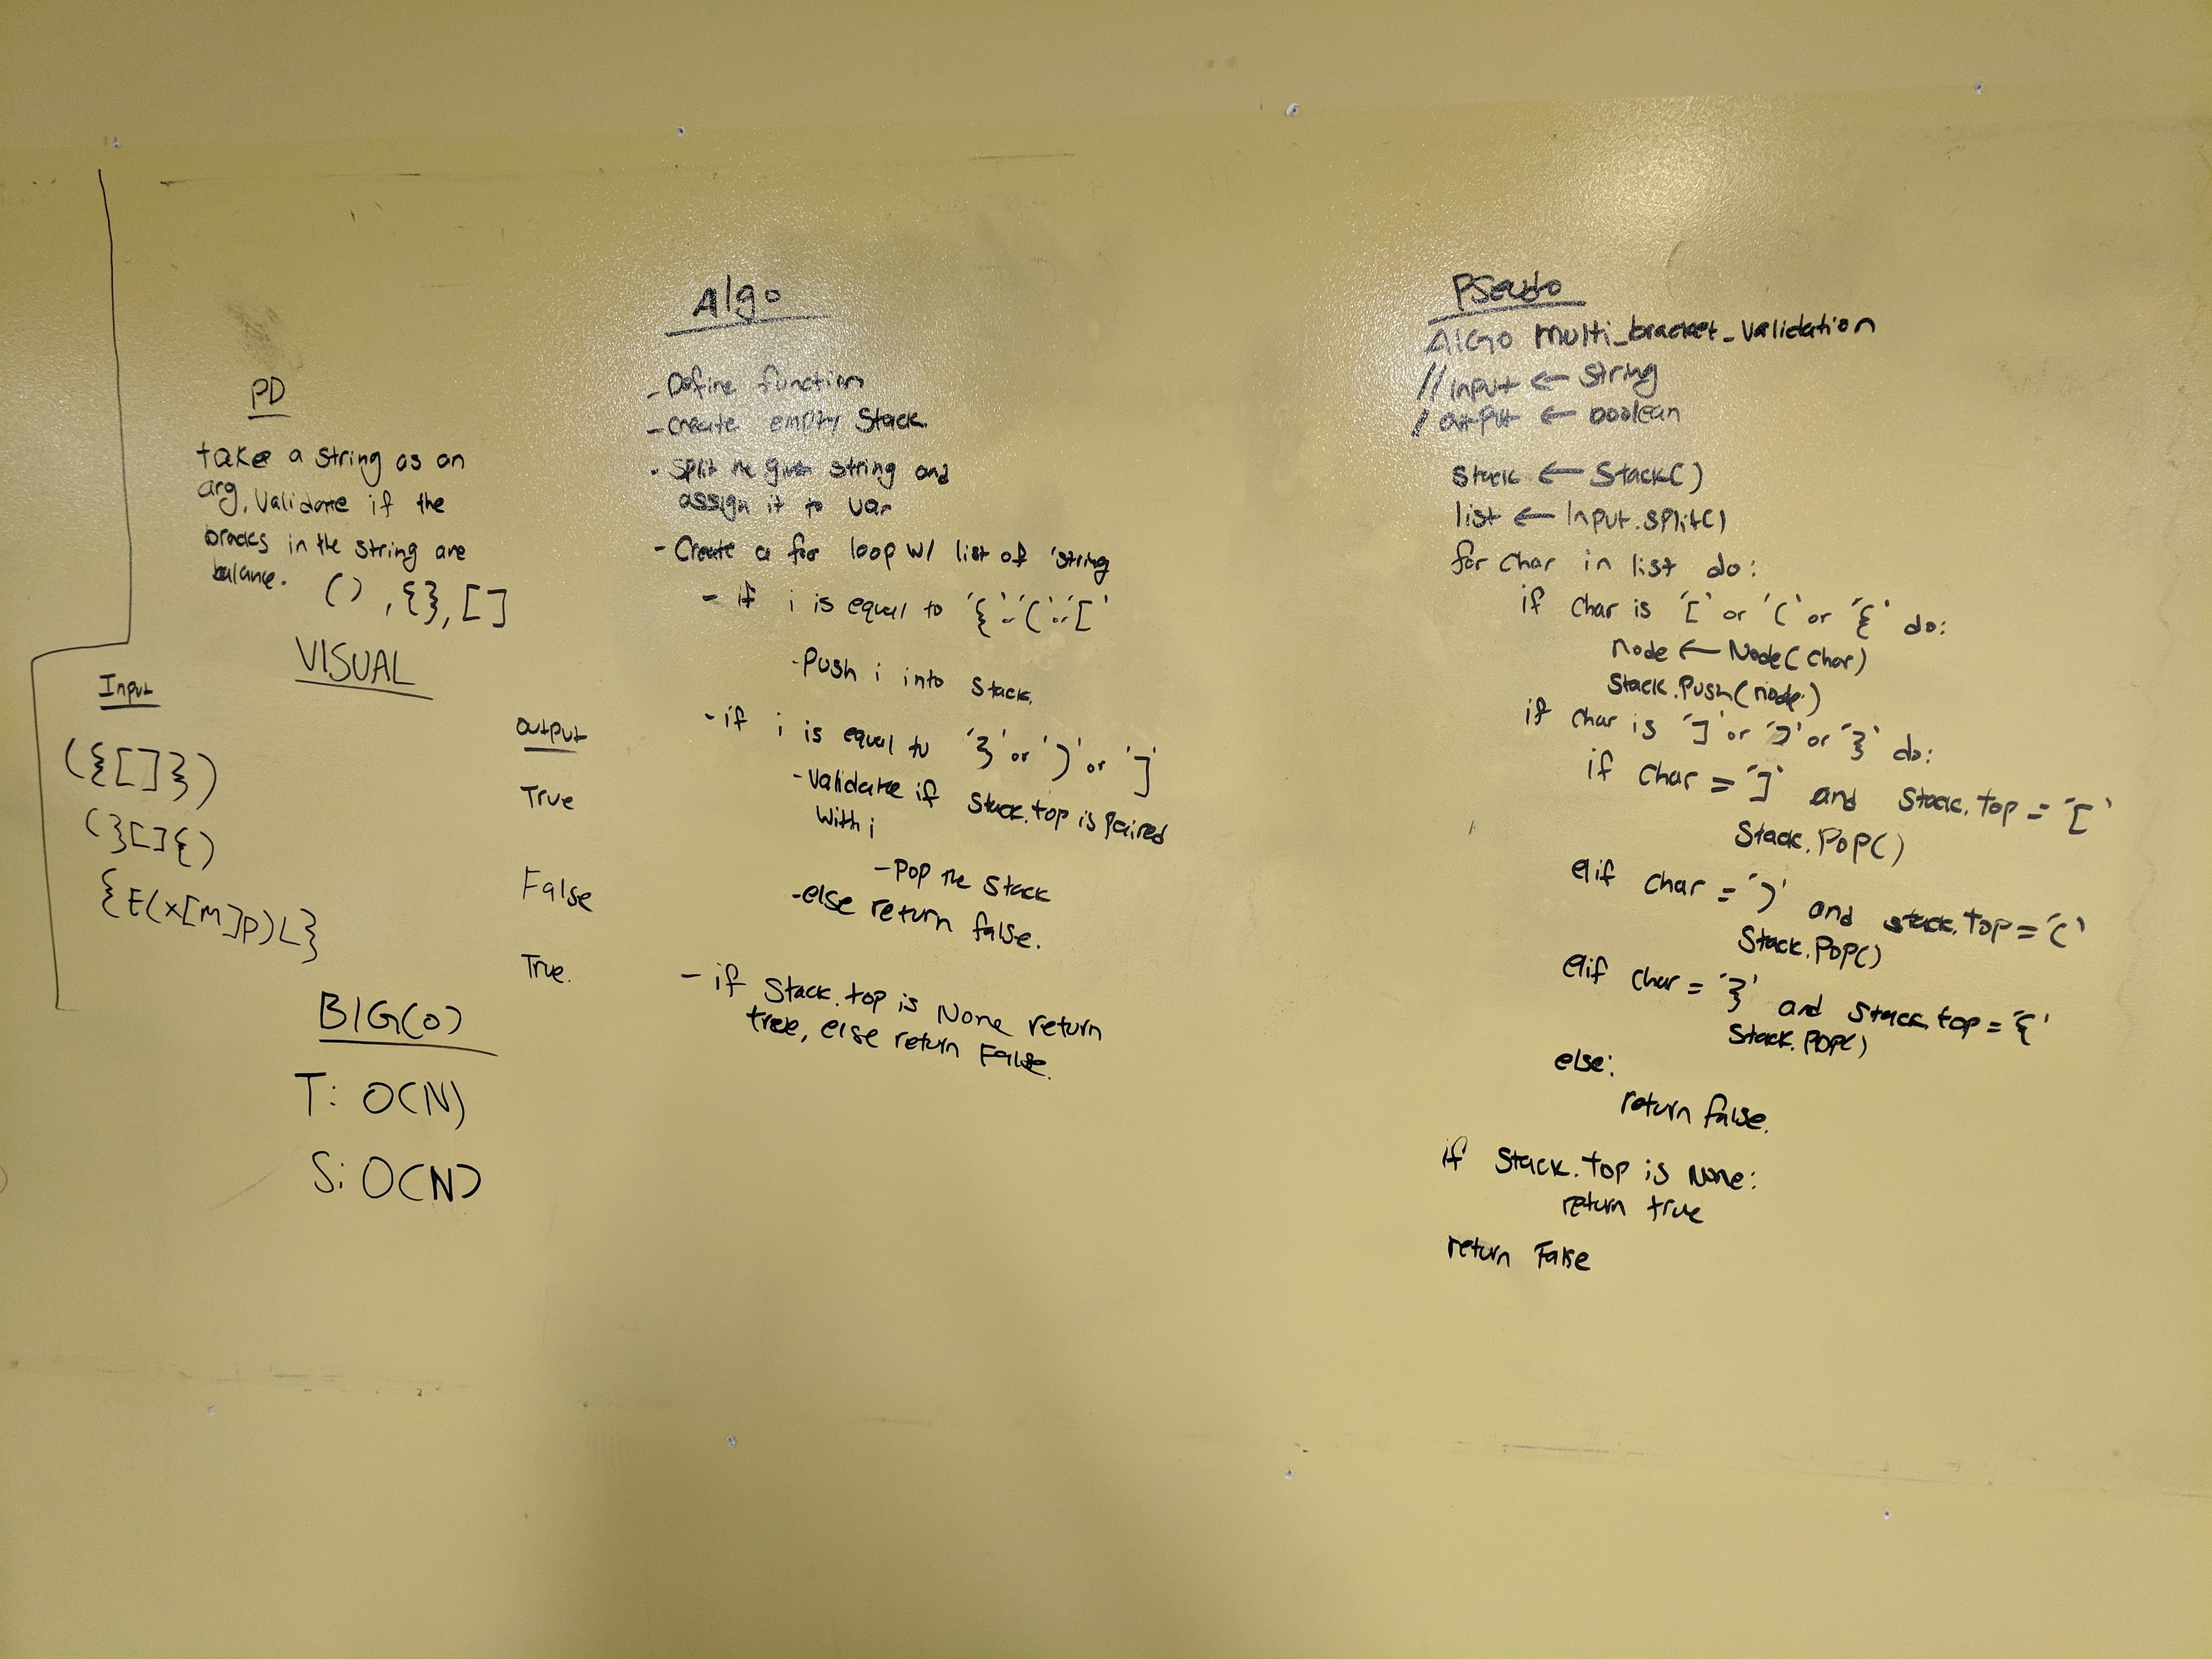 PD
take a string as an
arg. Validate if the
bracks in the string are
balance. (), {}, []
VISUAL
Input
({[]})
(}[]{)
{E(x[M]P)L}
output
True
False
True.
BIG(O)
T: O(N)
S: O(N)
Algo
- Define function
- Create empty Stack
- Split the given string and
assign it to var
- Create a for loop w/ list of 'string
- if i is equal to '{'.'('.'['
- Push i into stack.
- if i is equal to '}' or ')' or ']'
- Validate if Stack.top is Paired
with i
- Pop the Stack
- else return false.
- if Stack.top is None return
true, else return False.
PSeudo
AlGO multi_bracket_validation
// input ← string
/ output ← boolean
stack ← Stack()
list ← Input.split()
for char in list do:
if char is '[' or '(' or '{' do:
node ← Node(char)
Stack.Push(node)
if char is ']' or ')' or '}' do:
if char = ']' and Stack.top = '['
Stack.POP()
elif char = ')' and stack.top = '('
Stack.POP()
elif char = '}' and Stack.top = '{'
Stack.POP()
else:
return false.
if Stack.top is None:
return true
return False